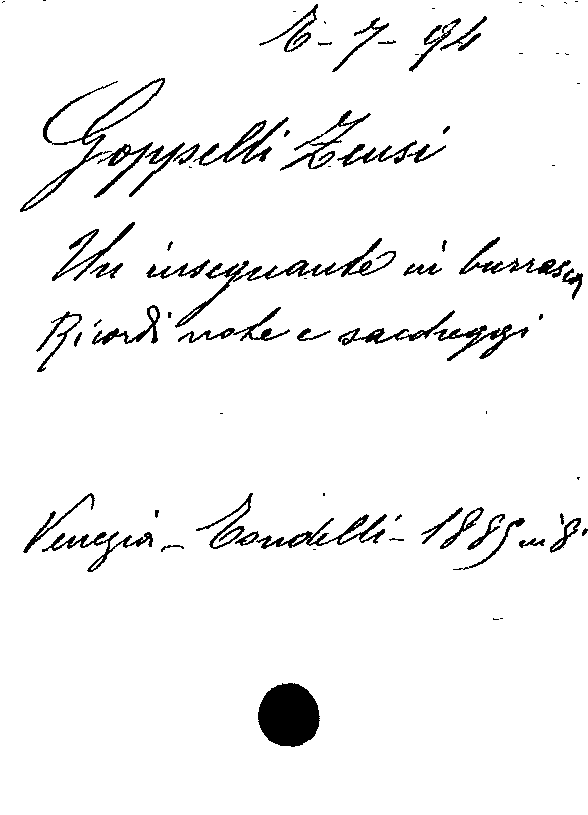 E-7-94
Goppelli Zeusi
Un insegnante in burrasca
Ricordi note e
Venezia - Tondelli - 1885 in 8°